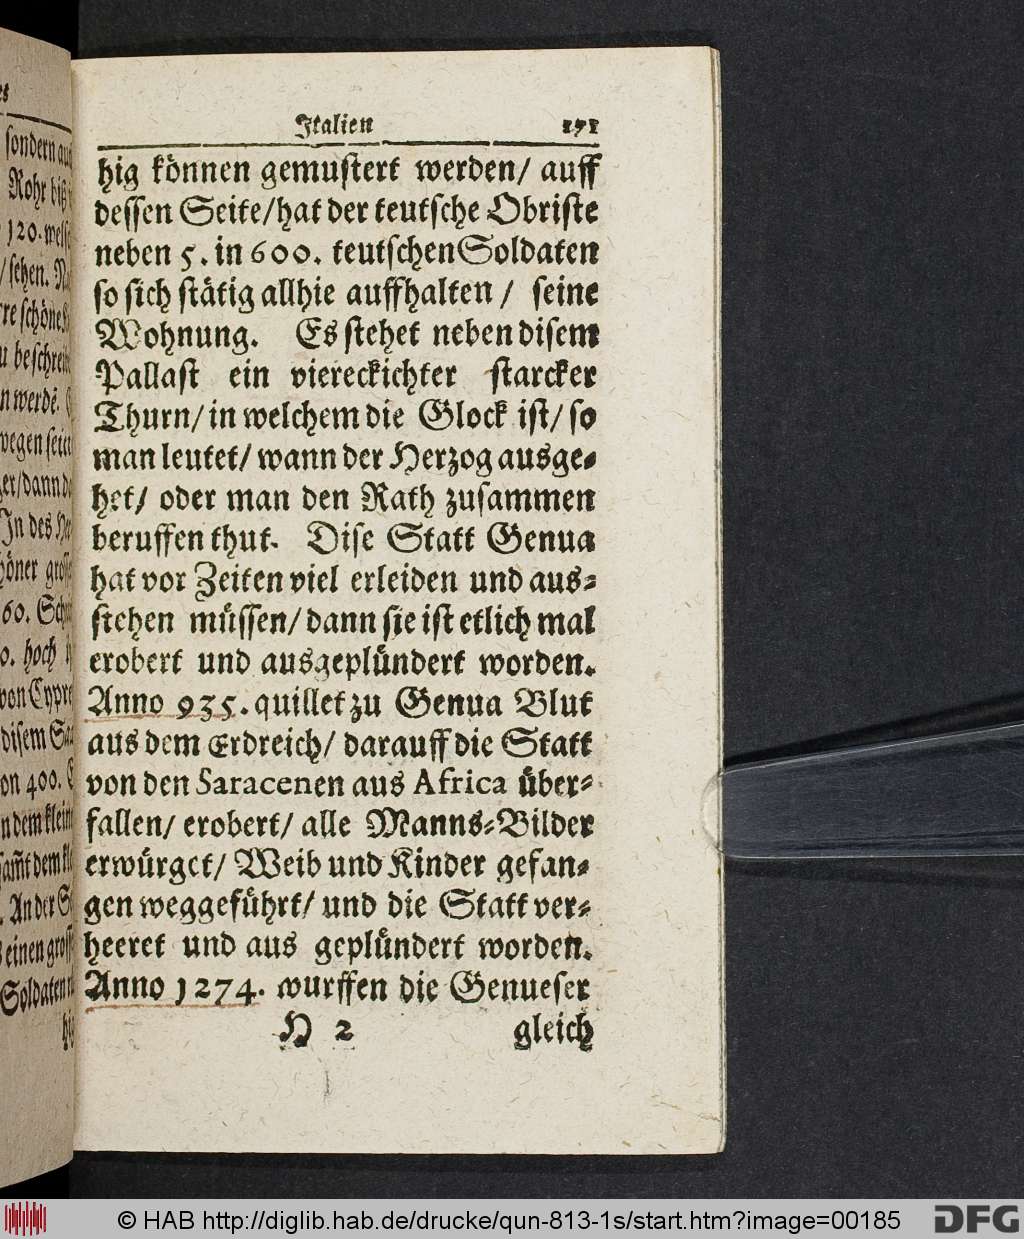 Italien 171
hig können gemustert werden/ auff
dessen Seite/hat der teutsche Obriste
neben 5. in 600. teutschen Soldaten
so sich stätig allhie auffhalten / seine
Wohnung. Es stehet neben disem
Pallast ein viereckichter starcker
Thurn/ in welchem die Glock ist/ so
man leutet/ wann der Herzog ausge-
het/ oder man den Rath zusammen
beruffen thut. Dise Statt Genua
hat vor Zeiten viel erleiden und aus-
stehen müssen/ dann sie ist etlich mal
erobert und ausgeplündert worden.
Anno 935. quillet zu Genua Blut
aus dem Erdreich/ darauff die Statt
von den Saracenen aus Africa über-
fallen/ erobert/ alle Manns-Bilder
erwürget/ Weib und Kinder gefan-
gen weggeführt/ und die Statt ver-
heeret und aus geplündert worden.
Anno 1274. wurffen die Genueser
H 2 gleich
sondern
Rohr biß
120.
sehen.
beschrei
werdē.
wegen
dann
In des
60.
0. hoch
von Cypre
disem
von 400.
dem klein
sam̃t dem
An der
einen gros
Soldaten
© HAB http://diglib.hab.de/drucke/qun-813-1s/start.htm?image=00185 DFG